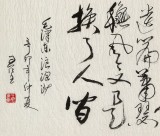 遺篇蕭瑟
穐風今又是
換了人間
毛澤東浪淘沙
辛卯年仲夏